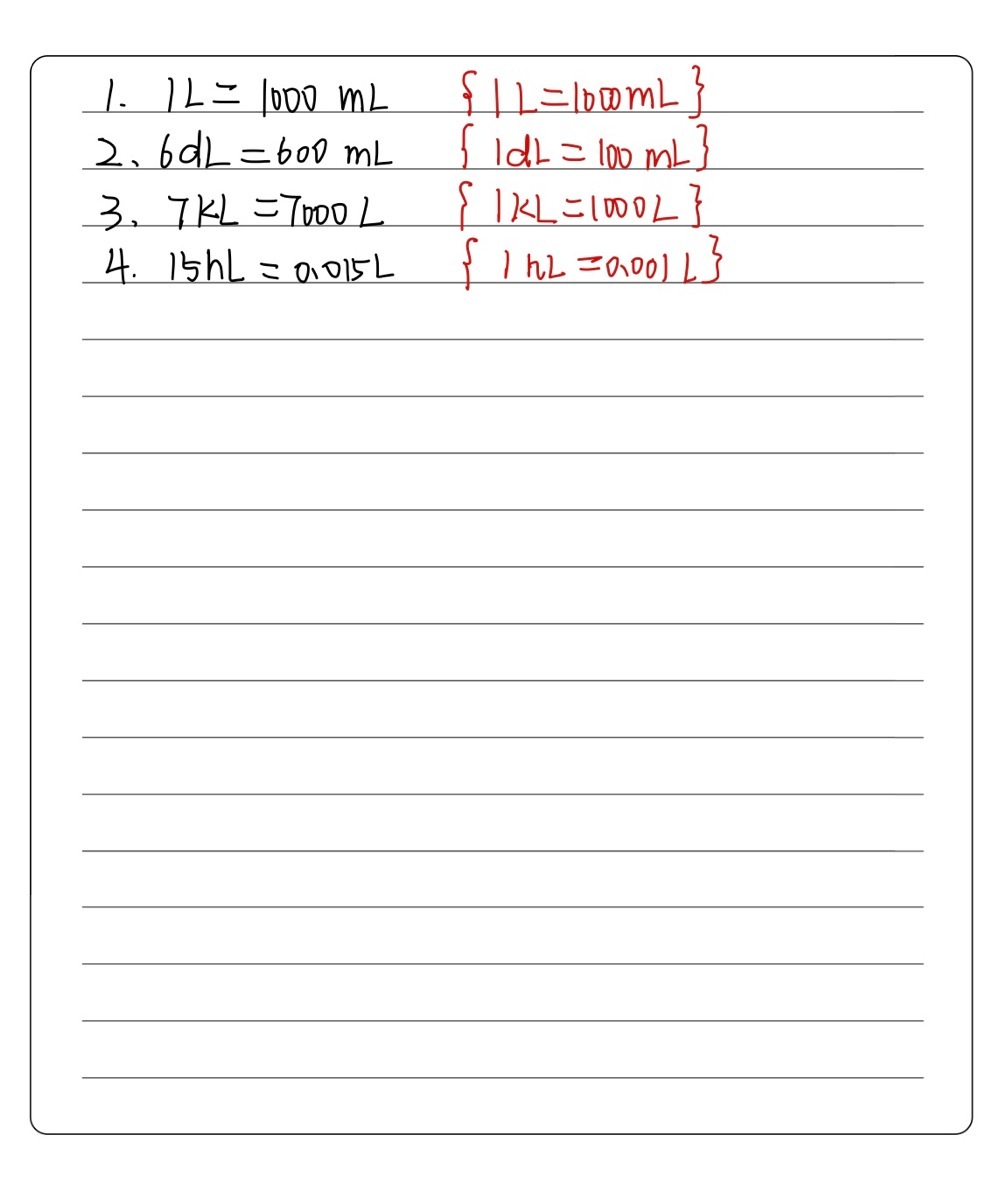 1. 1L = 1000 mL { 1L=1000mL }
2. 6dL = 600 mL { 1dL = 100 mL }
3. 7KL = 7000 L { 1KL=1000L }
4. 15hL = 0.015L { 1 hL = 0.001 L }